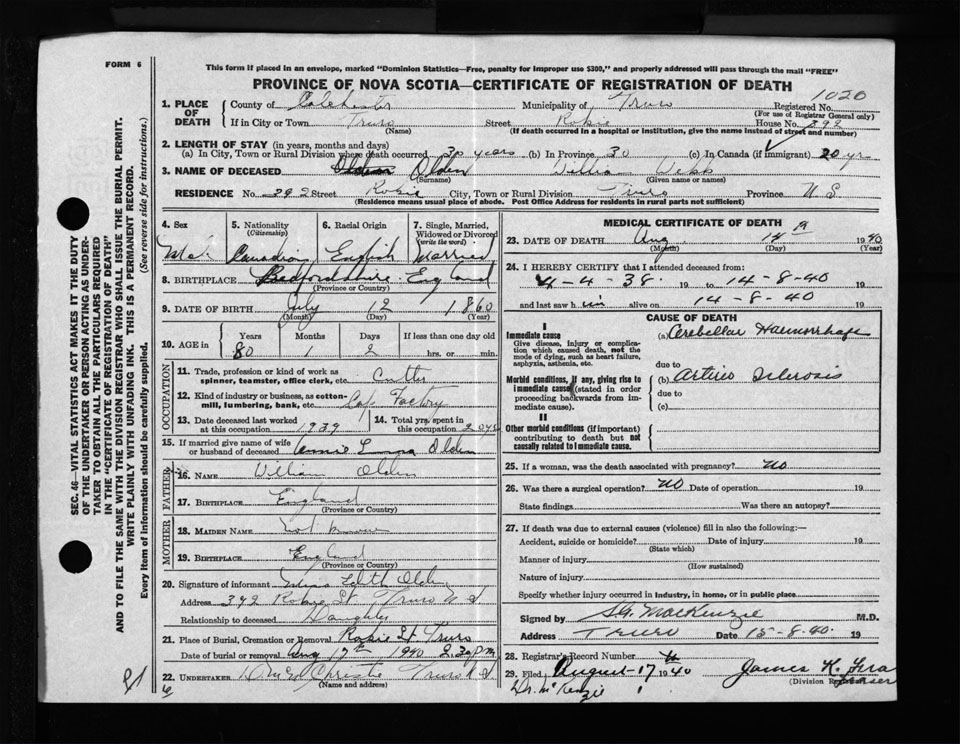 FORM 6
This form if placed in an envelope, marked "Dominion Statistics—Free, penalty for improper use $300," and properly addressed will pass through the mail "FREE"
PROVINCE OF NOVA SCOTIA—CERTIFICATE OF REGISTRATION OF DEATH
1020
1. PLACE OF DEATH County of Colchester Municipality of Truro Registered No.
(For use of Registrar General only)
If in City or Town Truro Street Robie House No. 392
(Name) (If death occurred in a hospital or institution, give the name instead of street and number)
2. LENGTH OF STAY (in years, months and days)
(a) In City, Town or Rural Division where death occurred 30 years (b) In Province 30 (c) In Canada (if immigrant) 30 yrs
3. NAME OF DECEASED Olden William Webb
(Surname) (Given name or names)
RESIDENCE No. 392 Street Robie City, Town or Rural Division Truro Province N S
(Residence means usual place of abode. Post Office Address for residents in rural parts not sufficient)
4. Sex 5. Nationality (Citizenship) 6. Racial Origin 7. Single, Married, Widowed or Divorced (write the word)
Male Canadian English Married
8. BIRTHPLACE Bedfordshire England
(Province or Country)
9. DATE OF BIRTH July 12 1860
(Month) (Day) (Year)
10. AGE in Years Months Days If less than one day
80 1 2 hrs. or min.
OCCUPATION
11. Trade, profession or kind of work as spinner, teamster, office clerk, etc. Cutter
12. Kind of industry or business, as cotton-mill, lumbering, bank, etc. Cap Factory
13. Date deceased last worked at this occupation 1939 14. Total yrs. spent in this occupation
15. If married give name of wife or husband of deceased Annie Olden
FATHER
16. NAME William Olden
17. BIRTHPLACE England
(Province or Country)
MOTHER
18. MAIDEN NAME not known
19. BIRTHPLACE England
(Province or Country)
20. Signature of informant Edith Olden
Address 392 Robie St. Truro N S
Relationship to deceased Daughter
21. Place of Burial, Cremation or Removal Robie St Truro
Date of burial or removal Aug 17th 1940 2.30 P.M.
22. UNDERTAKER Christie Truro N.S.
(Name and address)
MEDICAL CERTIFICATE OF DEATH
23. DATE OF DEATH Aug. 14 1940
(Month) (Day) (Year)
24. I HEREBY CERTIFY that I attended deceased from:
4-4-38 19 to 14-8-40 19
and last saw h im alive on 14-8-40 19
CAUSE OF DEATH
I
Immediate cause (a) Cerebellar Haemorrhage
Give disease, injury or complication which caused death, not the mode of dying, such as heart failure, asphyxia, asthenia, etc.
due to
Morbid conditions, if any, giving rise to immediate cause (stated in order proceeding backwards from immediate cause).
(b) Arterio Sclerosis
due to
(c)
II
Other morbid conditions (if important) contributing to death but not causally related to immediate cause.
25. If a woman, was the death associated with pregnancy? No
26. Was there a surgical operation? No Date of operation 19
State findings Was there an autopsy?
27. If death was due to external causes (violence) fill in also the following:—
Accident, suicide or homicide? Date of injury 19
(State which)
Manner of injury
(How sustained)
Nature of injury
Specify whether injury occurred in industry, in home, or in public place
Signed by MacKenzie M.D.
Address Truro Date 15-8-40. 19
28. Registrar's Record Number
29. Filed August 17 1940 James K. Fraser
(Division Registrar)
Dr. McKenzie
SEC. 46—VITAL STATISTICS ACT MAKES IT THE DUTY OF THE UNDERTAKER OR PERSON ACTING AS UNDERTAKER TO OBTAIN ALL THE PARTICULARS REQUIRED IN THE "CERTIFICATE OF REGISTRATION OF DEATH"
AND TO FILE THE SAME WITH THE DIVISION REGISTRAR WHO SHALL ISSUE THE BURIAL PERMIT.
WRITE PLAINLY WITH UNFADING INK. THIS IS A PERMANENT RECORD.
Every item of information should be carefully supplied. (See reverse side for instructions.)